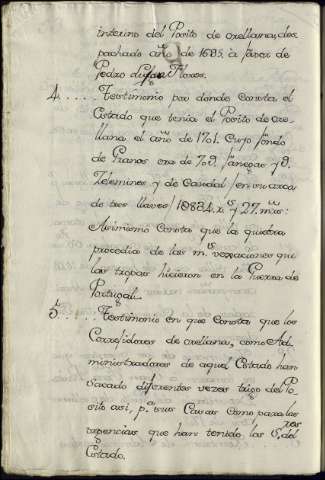 interino del Posito de orellana, des
pachado año de 1685. à favor de
Pedro Luján Flores.
4..... Testimonio por donde Consta el
Estado que tenía el Posito de ore-
llana el año de 1701. Cuyo fondo
de Granos era de 709. fanegas y 9.
Zelemines y de Caudal / en su arca
de tres llaves / 10834. r.s y 27. mrs:
Asimismo Consta que la quiebra
procedia de las m.s vexaciones que
las tropas hicieron en la Guerra de
Portugal.
5..... Testimonio en que Consta que los
Corregidores de orellana, como Ad-
ministradores de aquel Estado han
Sacado diferentes vezes trigo del Po-
sito asi, p.a sus Casas Como para las
urgencias que han tenido los S.res del
Estado.